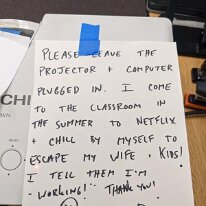 PLEASE LEAVE THE
PROJECTOR + COMPUTER
PLUGGED IN. I COME
TO THE CLASSROOM IN
THE SUMMER TO NETFLIX
+ CHILL BY MYSELF TO
ESCAPE MY WIFE + KIDS!
I TELL THEM I'M
"WORKING!" THANK YOU!
CHI